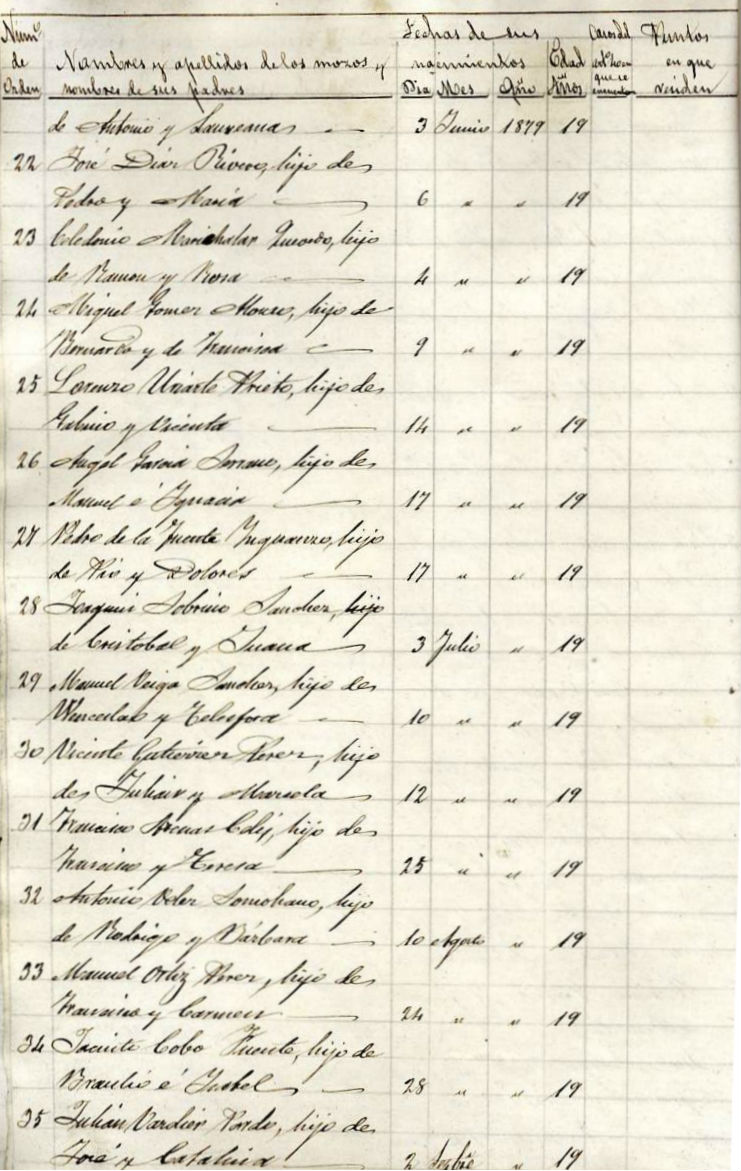 Númº Fechas de sus Casos del Puntos
de Nombres y apellidos de los mozos y nacimientos Edad artº en que
Orden nombres de sus padres Dia Mes Año Años que se residen
de Antonio y Laureana 3 Junio 1879 19
22 José Diaz Rivero, hijo de
Pedro y Maria 6 " " 19
23 Celedonio Marichalar hijo
de Ramon y Rosa 4 " " 19
24 Miguel Gomez Alonso, hijo de
Bernardo y de Francisca 9 " " 19
25 Lorenzo Uriarte Prieto, hijo de
Gabino y Vicenta 14 " " 19
26 Angel Garcia Serrano, hijo de
Manuel é Ignacia 17 " " 19
27 Pedro de la Fuente Inguanzo, hijo
de Pio y Dolores 17 " " 19
28 Joaquin Sobrino Sanchez, hijo
de Cristobal y Juana 3 Julio " 19
29 Manuel Veiga Sanchez, hijo de
Wenceslao y Telesfora 10 " " 19
30 Vicente Gutierrez Perez, hijo
de Julián y Marcela 12 " " 19
31 Francisco Arenas Celis, hijo de
Francisco y Teresa 25 " " 19
32 Antonio Velez Somohano, hijo
de Rodrigo y Bárbara 10 Agosto " 19
33 Manuel Ortiz Perez, hijo de
Francisco y Carmen 24 " " 19
34 Jacinto Cobo Fuente, hijo de
Braulio é Isabel 28 " " 19
35 Julián Pardo, hijo de
José y Catalina 2 Sepbre " 19